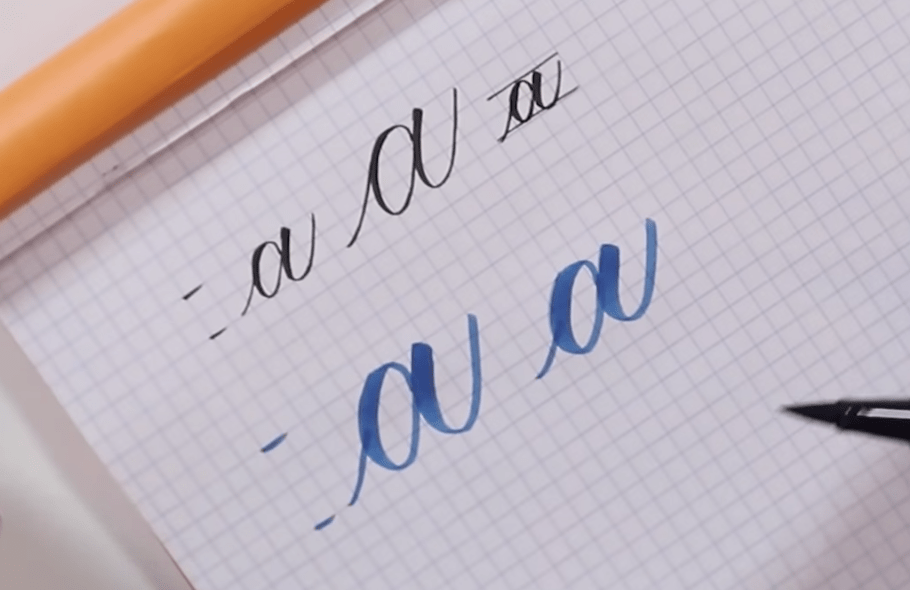 a a a
a a